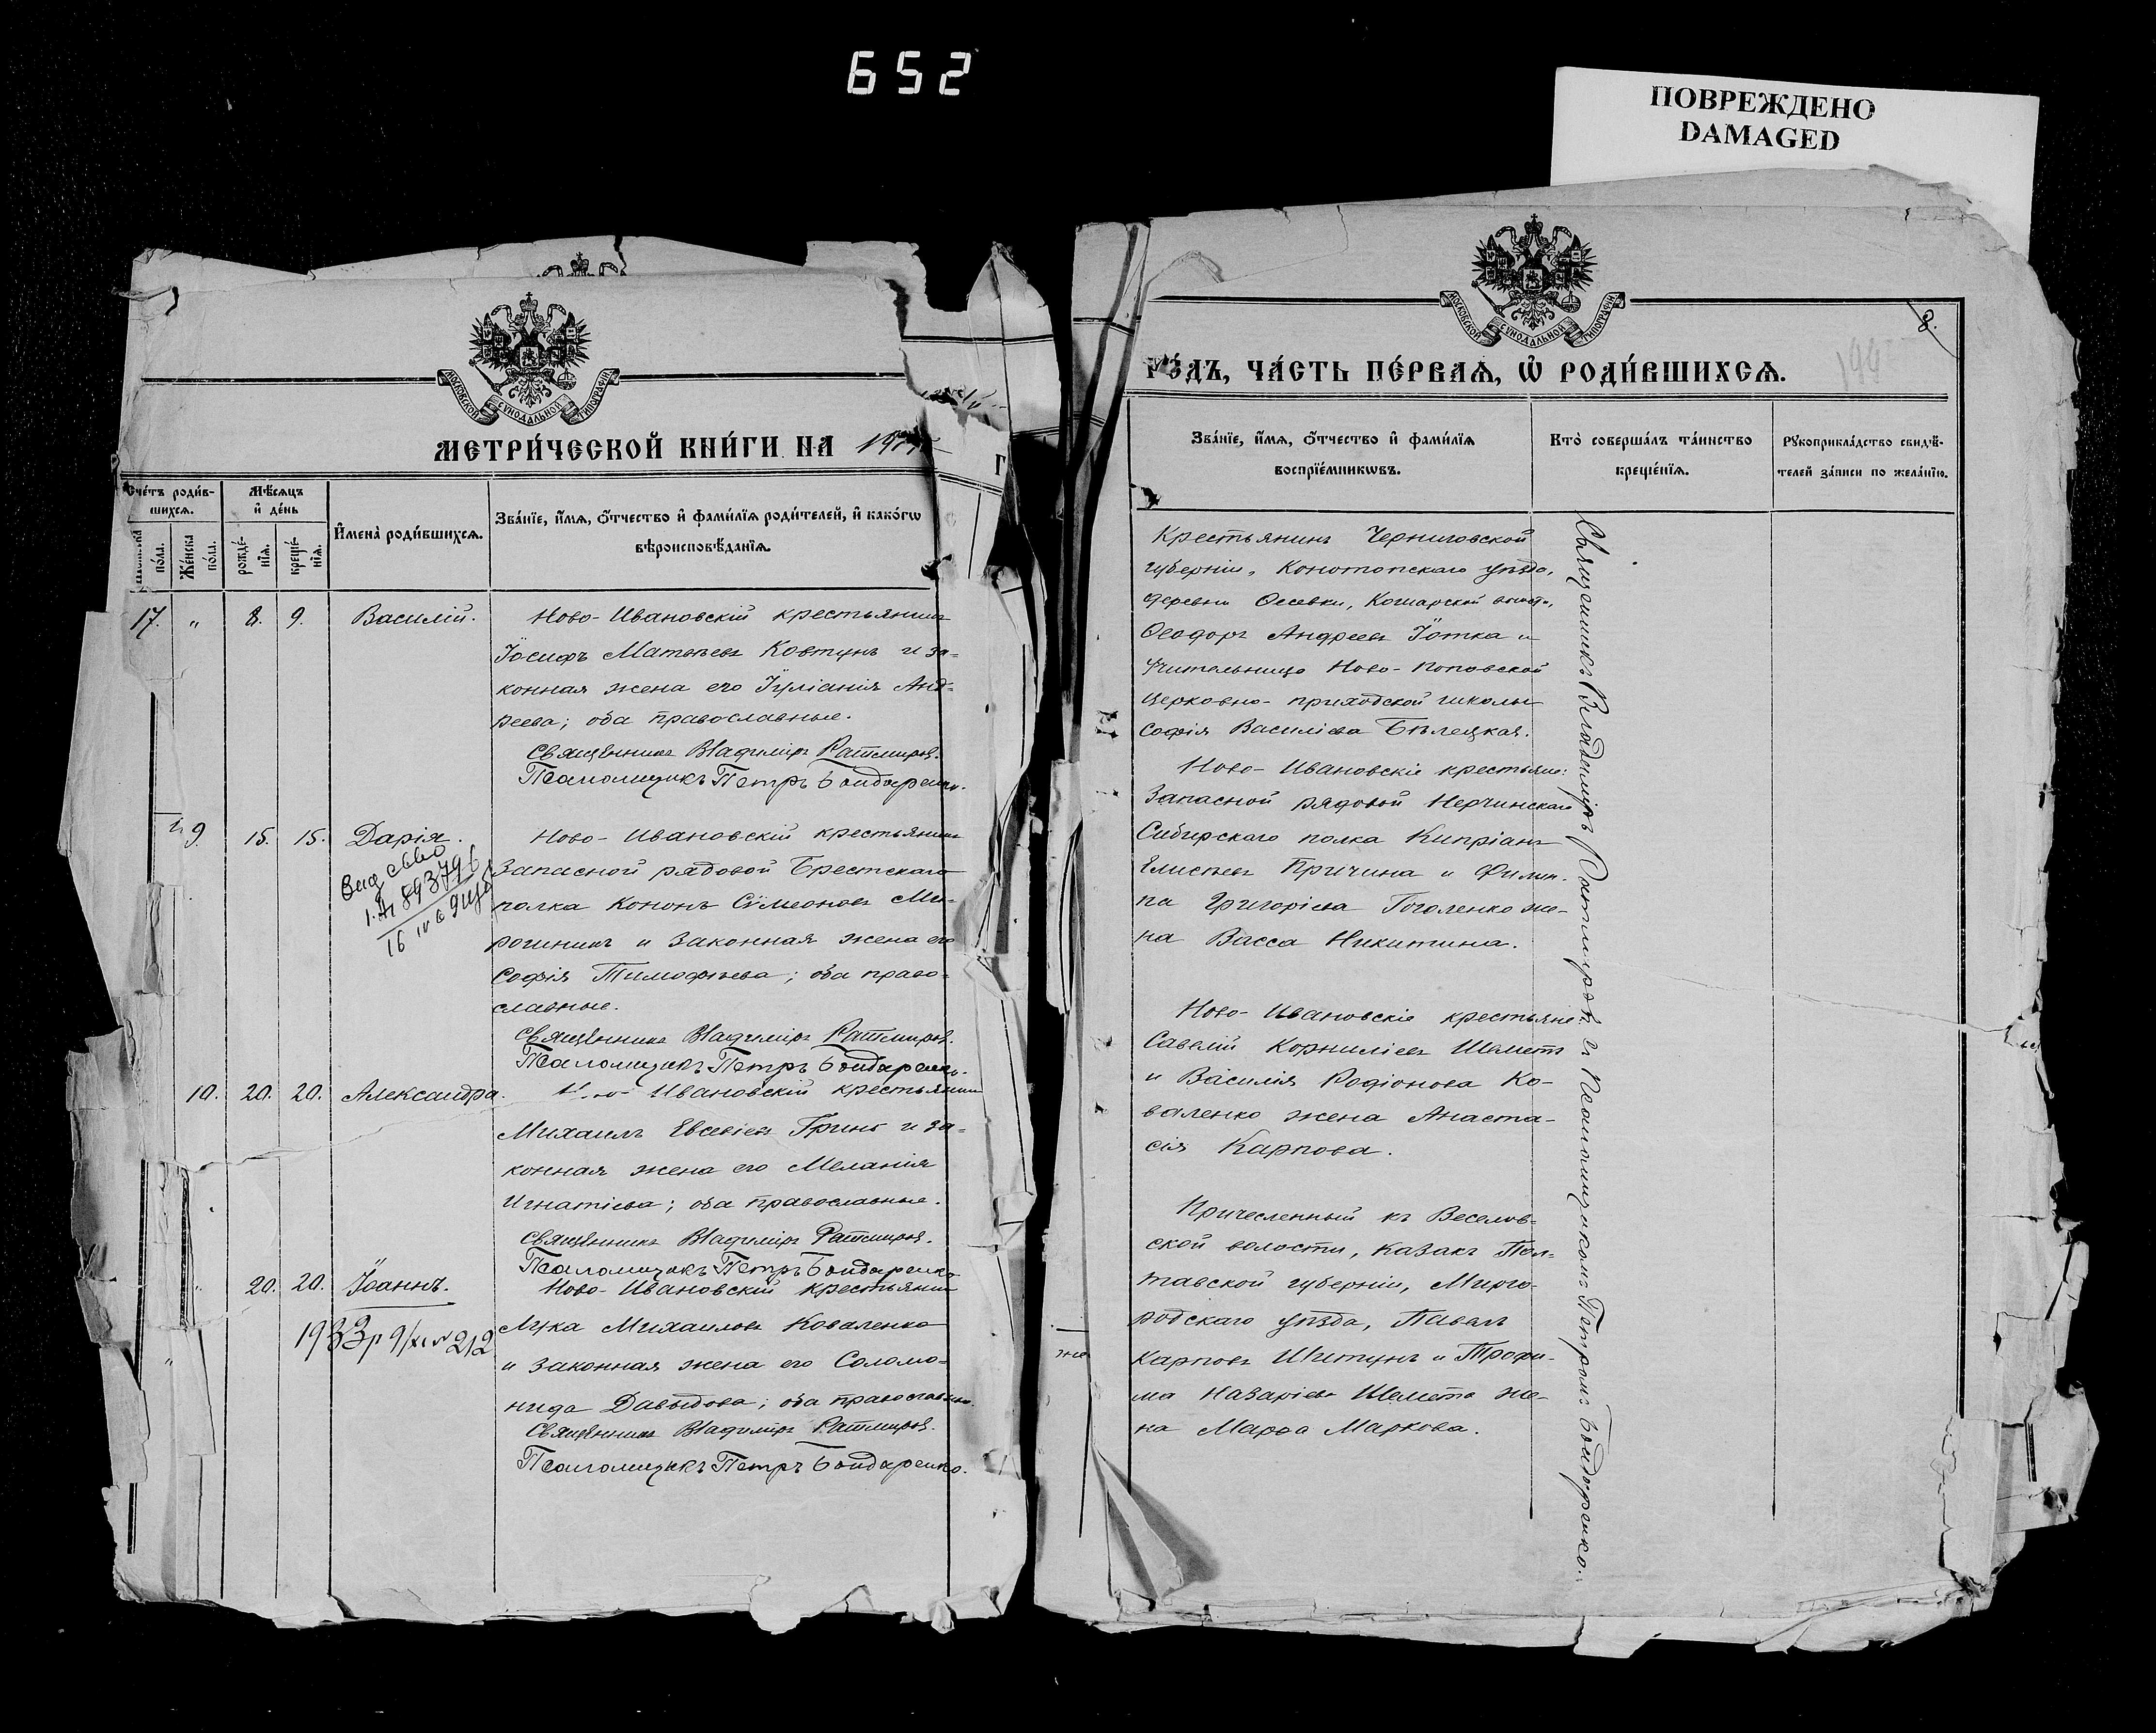 652
ПОВРЕЖДЕНО
DAMAGED
МОСКОВСКОЙ СѴНОДАЛЬНОЙ ТИПОГРАФІИ
МЕТРИ́ЧЕСКОЙ КНИ́ГИ НА
Сче́тъ роди́в-
шихсѧ.
Мѣ́сѧцъ
и҆ де́нь
по́ла.
Же́нска
по́ла.
рожде́-
нїѧ.
креще́-
нїѧ.
И҆мена̀ роди́вшихсѧ.
Зва́нїе, и҆́мѧ, ѻ҆́тчество и҆ фами́лїѧ роди́телей, и҆ како́гѡ
вѣроисповѣ́данїѧ.
17. " 8. 9. Василій.
Ново-Ивановскій крестьянинъ
Іосифъ Матѳеевъ Ковтунъ и за-
конная жена его Іуліанія Анд-
реева; оба православные.
Священникъ Владиміръ Ратмировъ.
Псаломщикъ Петръ Бондаренко.
9. 15. 15. Дарія.
1893796
Ново-Ивановскій крестьянинъ
Запасной рядовой Брестскаго
полка Кононъ Сѵмеоновъ Ми-
рошникъ и законная жена его
Софія Тимофѣева; оба право-
славные.
Священникъ Владиміръ Ратмировъ.
Псаломщикъ Петръ Бондаренко.
10. 20. 20. Александра.
Ивановскій крестьянинъ
Михаилъ Евсевіевъ Гринь и за-
конная жена его Меланія
Игнатіева; оба православные.
Священникъ Владиміръ Ратмировъ.
Псаломщикъ Петръ Бондаренко
20. 20. Іоаннъ.
1933 р 9/XI № 212
Ново-Ивановскій крестьянинъ
Лука Михаиловъ Коваленко
и законная жена его Соломо-
нида Давыдова; оба православные.
Священникъ Владиміръ Ратмировъ.
Псаломщикъ Петръ Бондаренко.
МОСКОВСКОЙ СѴНОДАЛЬНОЙ ТИПОГРАФІИ
8.
ЧА́СТЬ ПЕ́РВАѦ, Ѡ҆ РОДИ́ВШИХСѦ.
Зва́нїе, и҆́мѧ, ѻ҆́тчество и҆ фами́лїѧ
воспрїе́мникѡвъ.
Кто̀ соверша́лъ та́инство
креще́нїѧ.
Рꙋкоприкла́дство свидѣ́-
телей за́писи по жела́нїю.
Крестьянинъ Черниговской
губерніи, Конотопскаго уѣзда,
деревни Осевки,
Ѳеодоръ Андреевъ Іотка и
Учительница Ново-Поповской
церковно-приходской школы
Софія Василіева Бѣлецкая.
Ново-Ивановскіе крестьяне:
Запасной рядовой Нерчинскаго
Сибирскаго полка Кипріанъ
Елисѣевъ Причина и Филип-
па Григоріева Гоголенко же-
на Васса Никитина.
Ново-Ивановскіе крестьяне:
Савелій Корниліевъ Шеметъ
и Василія Родіонова Ко-
валенко жена Анаста-
сія Карпова.
Причесленный къ Веселов-
ской волости, казакъ Пол-
тавской губерніи, Мирго-
родскаго уѣзда, Павелъ
Карповъ Шкетунъ и Трофи-
ма Назаріева Шемета же-
на Марѳа Маркова.
Священникъ Владиміръ Ратмировъ съ Псаломщикомъ Петромъ Бондаренко.